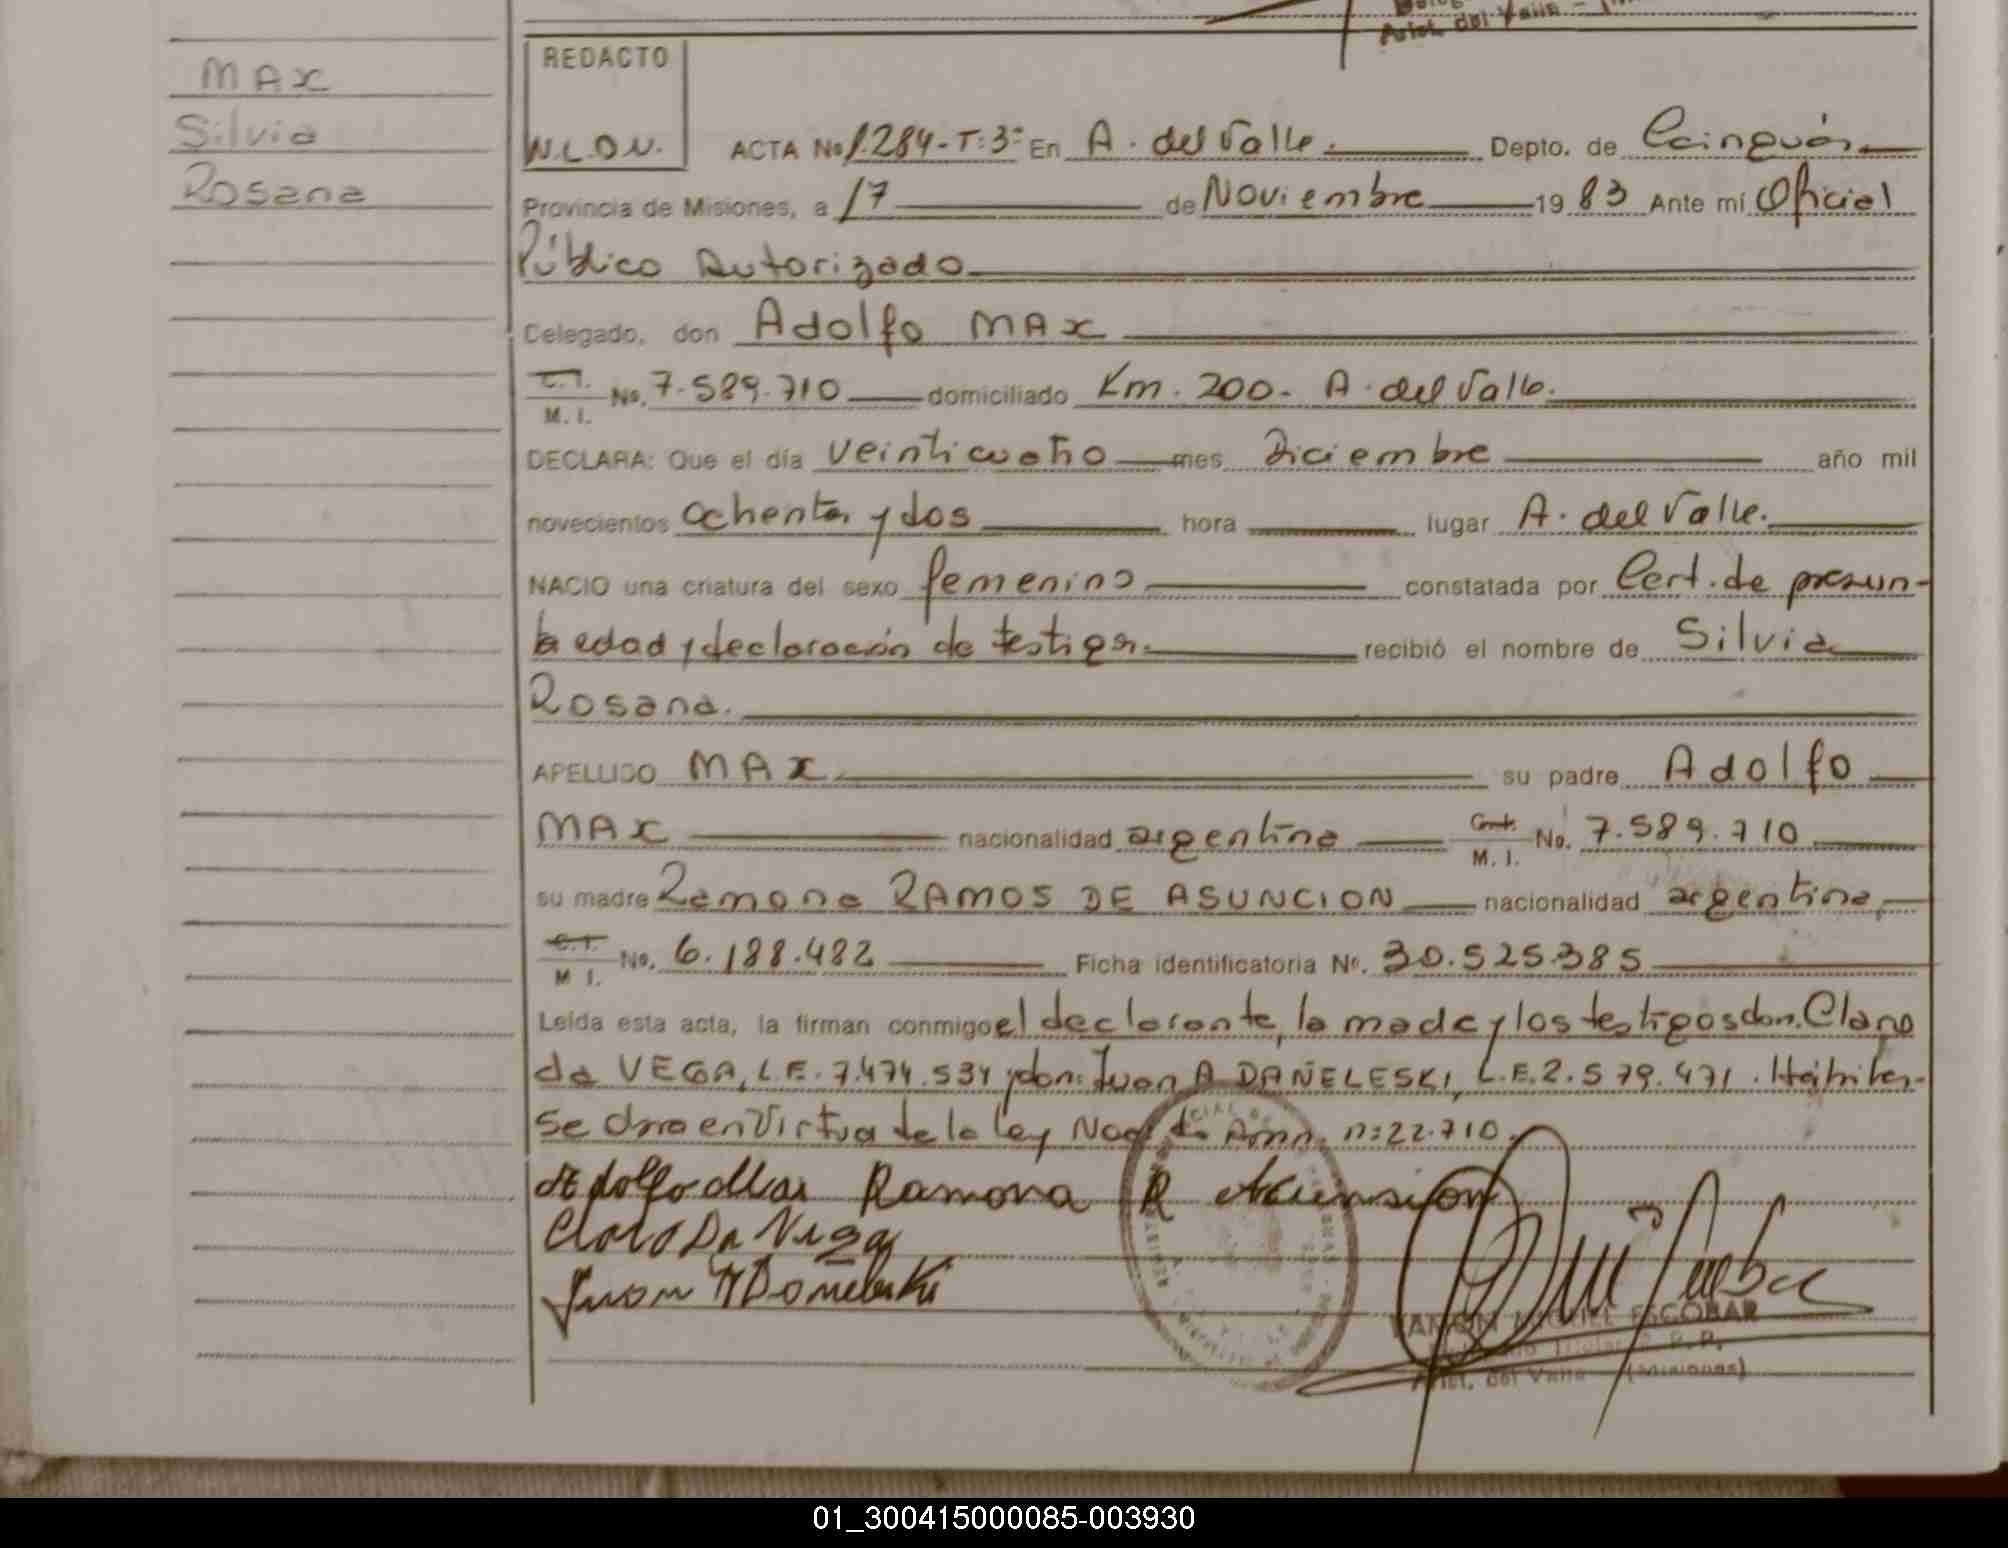 Arist. del Valle -
MAX
Silvia
Rosana
REDACTO
N.L.D.V.
ACTA No 1.284-T:3º En A. del Valle. Depto. de Cainguás
Provincia de Misiones, a 17 de Noviembre 1983 Ante mí Oficial
Público Autorizado
Delegado, don Adolfo MAX
C.I. M.I. No. 7.589.710 domiciliado Km. 200- A. del Valle.
DECLARA: Que el día veinticuatro mes Diciembre año mil
novecientos ochenta y dos hora lugar A. del Valle.
NACIO una criatura del sexo femenino constatada por Cert. de presun-
ta edad y declaración de testigos. recibió el nombre de Silvia
Rosana.
APELLIDO MAX su padre Adolfo
MAX nacionalidad argentina M.I. No. 7.589.710
su madre Ramona RAMOS DE ASUNCION nacionalidad argentina,
C.I. M I. No. 6.188.482 Ficha identificatoria No. 30.525.385
Leída esta acta, la firman conmigo el declarante, la made y los testigos don. Claro
da VEGA, L.E. 7.474.534 y don: Juan A DAÑELESKI, L.E. 2.579.471.
se en Virtud de la Ley Nac. de n:22.710.
Adolfo Max Ramona R Acunsion
Claro Da Vega
Juan A Doneleski
RAMON MIGUEL ESCOBAR
Arist. del Valle (Misiones)
01_300415000085-003930